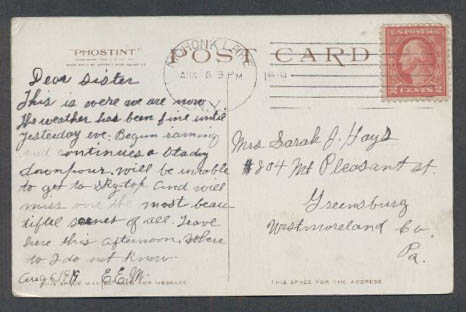 "PHOSTINT"
POST CARD
MOHONK LAKE
AUG 6 3 PM
N.Y.
U.S. POSTAGE
2 CENTS 2
Dear Sister
This is were we are now
the weather has been fine until
yesterday eve. Begun raining
and continues a steady
downpour. will be unable
to get to Sky-top and will
miss one the most beau
tiful scenes of all. Leave
here this afternoon. Where
to I do not know
Aug 6/19 E.E.M.
Mrs Sarah J. Hays
#804 Mt Pleasant St.
Greensburg
Westmoreland Co.
Pa.
THIS SPACE MAY BE USED FOR MESSAGE
THIS SPACE FOR THE ADDRESS